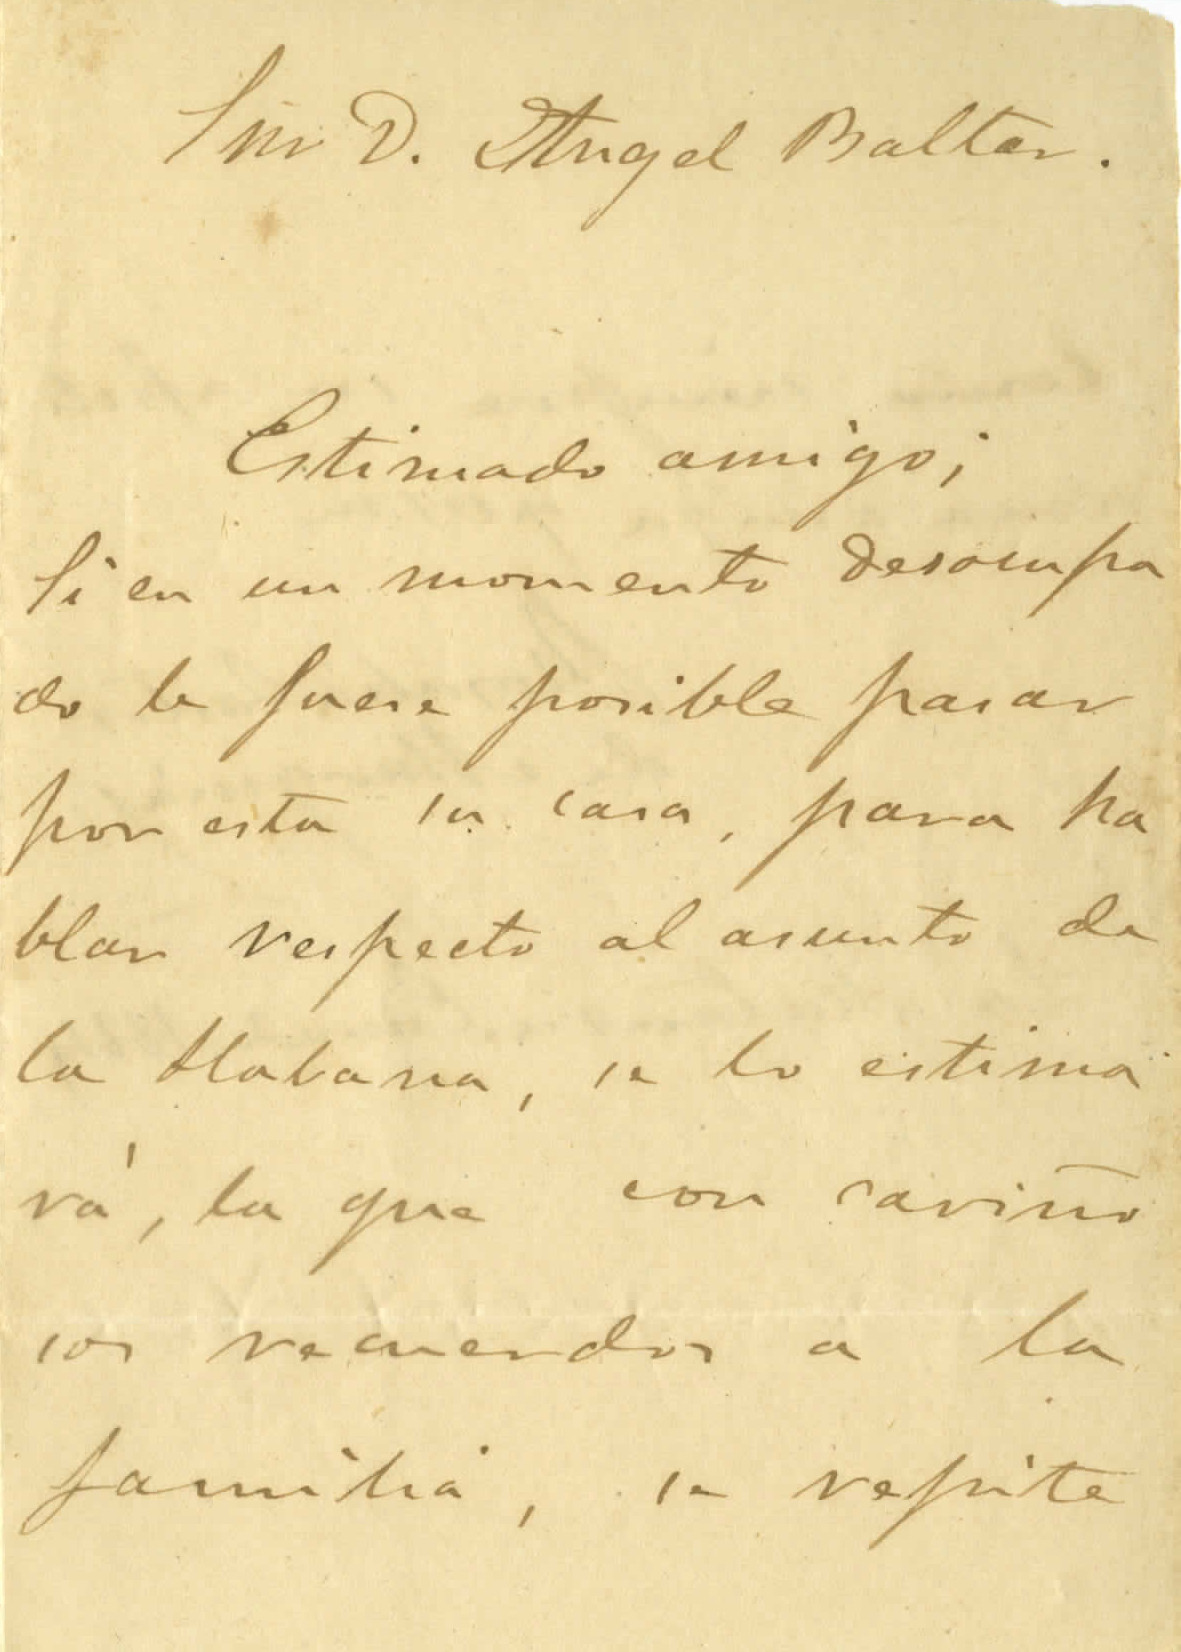 Snr D. Angel Baltar.
Estimado amigo;
Si en un momento desocupa
do le fuese posible pasar
por esta su casa, para ha
blar respecto al asunto de
la Habana, se lo estima
rá, la que con cariño
sos recuerdos a la
familia, se repite